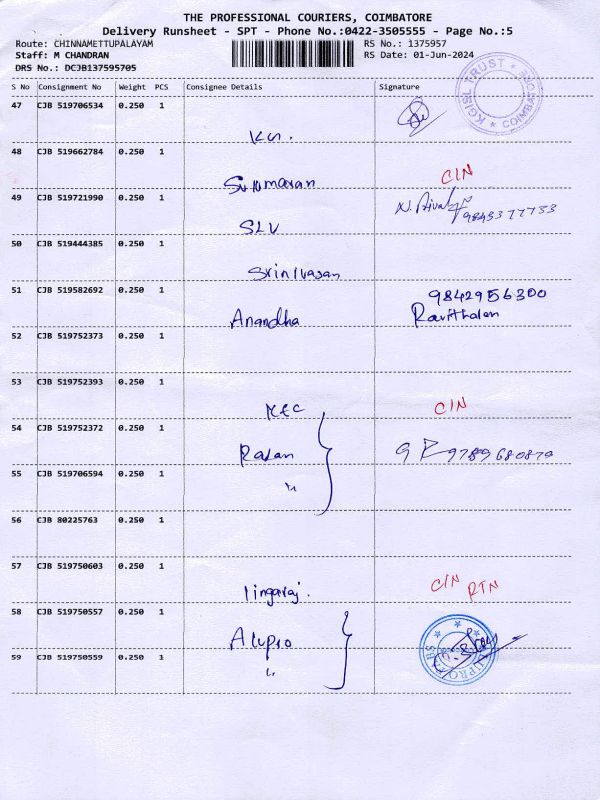 THE PROFESSIONAL COURIERS, COIMBATORE
Delivery Runsheet - SPT - Phone No.:0422-3505555 - Page No.:5
Route: CHINNAMETTUPALAYAM RS No.: 1375957
Staff: M CHANDRAN RS Date: 01-Jun-2024
DRS No.: DCJB137595705
S No Consignment No Weight PCS Consignee Details Signature
47 CJB 519706534 0.250 1
KGISL TRUST * COIMBATORE *
48 CJB 519662784 0.250 1
Sukumaran CIN
49 CJB 519721990 0.250 1
SLV 9843377733
50 CJB 519444385 0.250 1
Srinivasan
51 CJB 519582692 0.250 1 9842956300
Anandha Ravithalan
52 CJB 519752373 0.250 1
53 CJB 519752393 0.250 1
KEC CIN
54 CJB 519752372 0.250 1
Rajan 9789680879
55 CJB 519706594 0.250 1
"
56 CJB 80225763 0.250 1
57 CJB 519750603 0.250 1
lingaraj. CIN RTN
58 CJB 519750557 0.250 1
Alupro
59 CJB 519750559 0.250 1
"